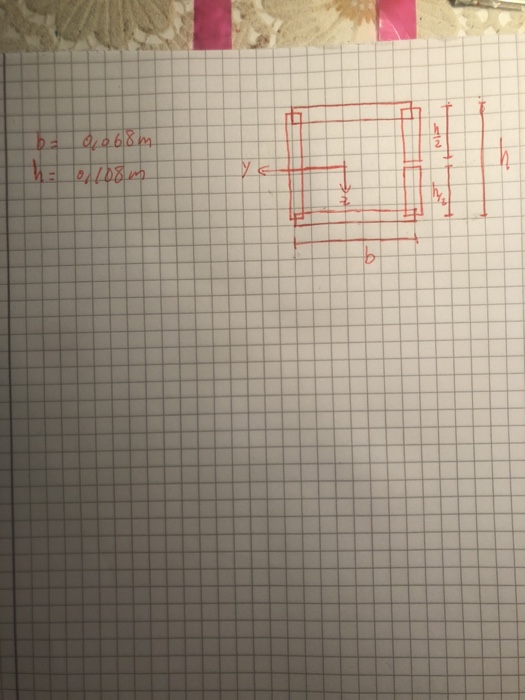 b= 0,068m
h= 0,108m
y
z
h/2
h/2
h
b